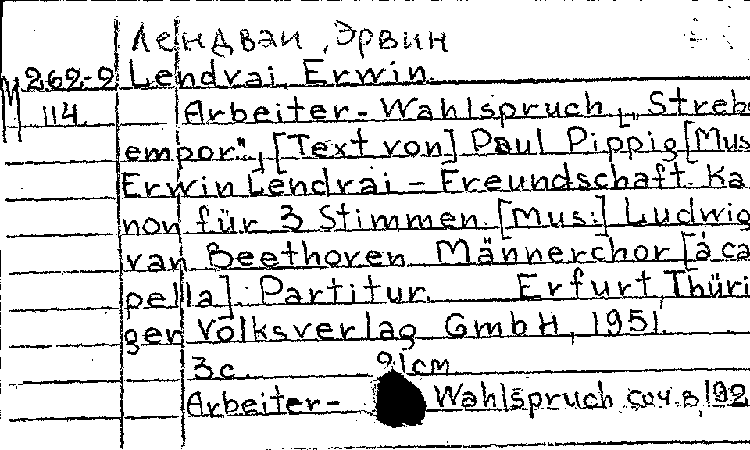 Лендваи, Эрвин
M 262-2 Lendvai, Erwin.
114 Arbeiter-Wahlspruch „Streb
empor", [Text von] Paul Pippig [Mus
Erwin Lendvai – Freundschaft. Ka
non für 3 Stimmen. [Mus:] Ludwig
van Beethoven Männerchor [à ca
pella]. Partitur. Erfurt, Thüri
ger Volksverlag GmbH, 1951.
3 c. 21 cm
Arbeiter- Wahlspruch соч. в 192